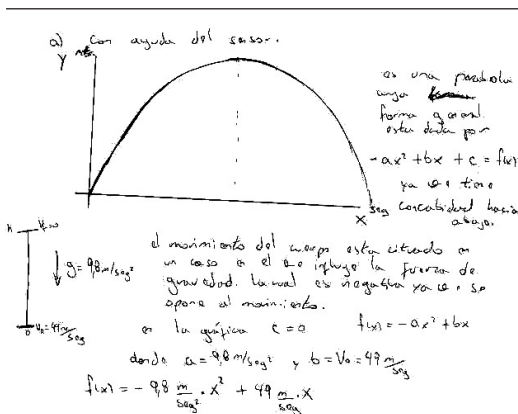 a) Con ayuda del sensor.
Y Mts
es una parabola
cuya
forma general
esta dada por
-ax² + bx + c = f(x)
ya que tiene
concatividad hacia
abajo.
X Seg
h V=0
g = 9,8 m/seg²
0 V₀ = 49 m/seg
el movimiento del cuerpo esta cituado en
un caso en el que influye la fuerza de
gravedad. La cual es negativa ya que se
opone al movimiento.
en la gráfica c = 0 f(x) = -ax² + bx
donde a = 9,8 m/seg² y b = V₀ = 49 m/seg
f(x) = - 9,8 m/seg² . x² + 49 m/seg . x